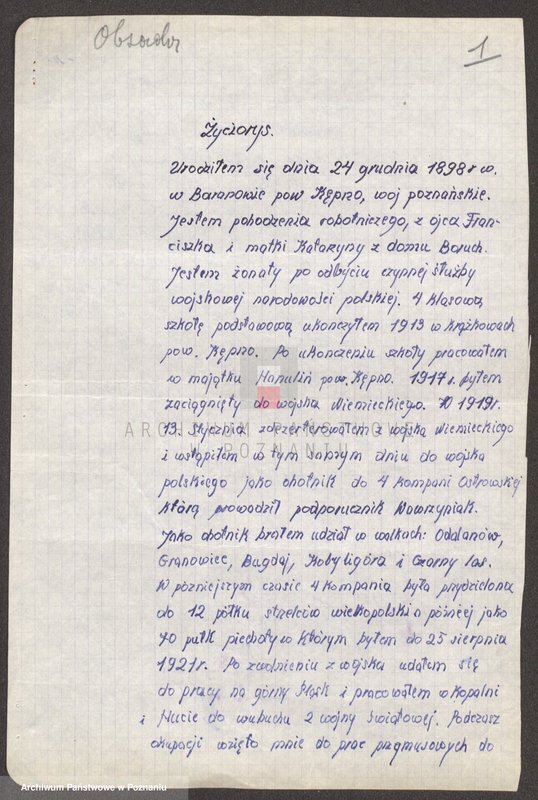 Obsada
1
Życiorys.
Urodziłem się dnia 24 grudnia 1898 r w.
w Baranowie pow Kępno, woj poznańskie.
Jestem pohodzenia robotniczego, z ojca Fran-
ciszka i matki Katarzyny z domu Boruch.
Jestem żonaty po odbyciu czynnej służby
wojskowej narodowości polskiej. 4 klasową
szkołę podstawową ukończyłem 1913 w krążkowach
pow. Kępno. Po ukończeniu szkoły pracowałem
w majątku Hanulin pow. Kępno. 1917 r. byłem
zaciągnięty do wojska Niemieckiego. W 1919 r.
13. Stycznia zdezerterowałem z wojska Niemieckiego
i wstąpiłem w tym samym dniu do wojska
polskiego jako ohotnik do 4 kompani Ostrowskiej
którą prowadził podporucznik Wawrzyniak.
Jako ohotnik brałem udział w walkach: Odolanów,
Granowiec, Bugdaj, Kobyligóra i Czarny las.
W pózniejszym czasie 4 kompania była przydzielona
do 12 półku strzelców wielkopolski a później jako
70 pułk piechoty w którym byłem do 25 sierpnia
1921 r. Po zwolnieniu z wojska udałem się
do pracy na górny Śląsk i pracowałem w Kopalni
i Hucie do wubuchu 2 wojny Światowej. Podczasz
okupacji wzięto mnie do prac przymusowych do
ARCHIWUM PAŃSTWOWE
W POZNANIU
Archiwum Państwowe w Poznaniu